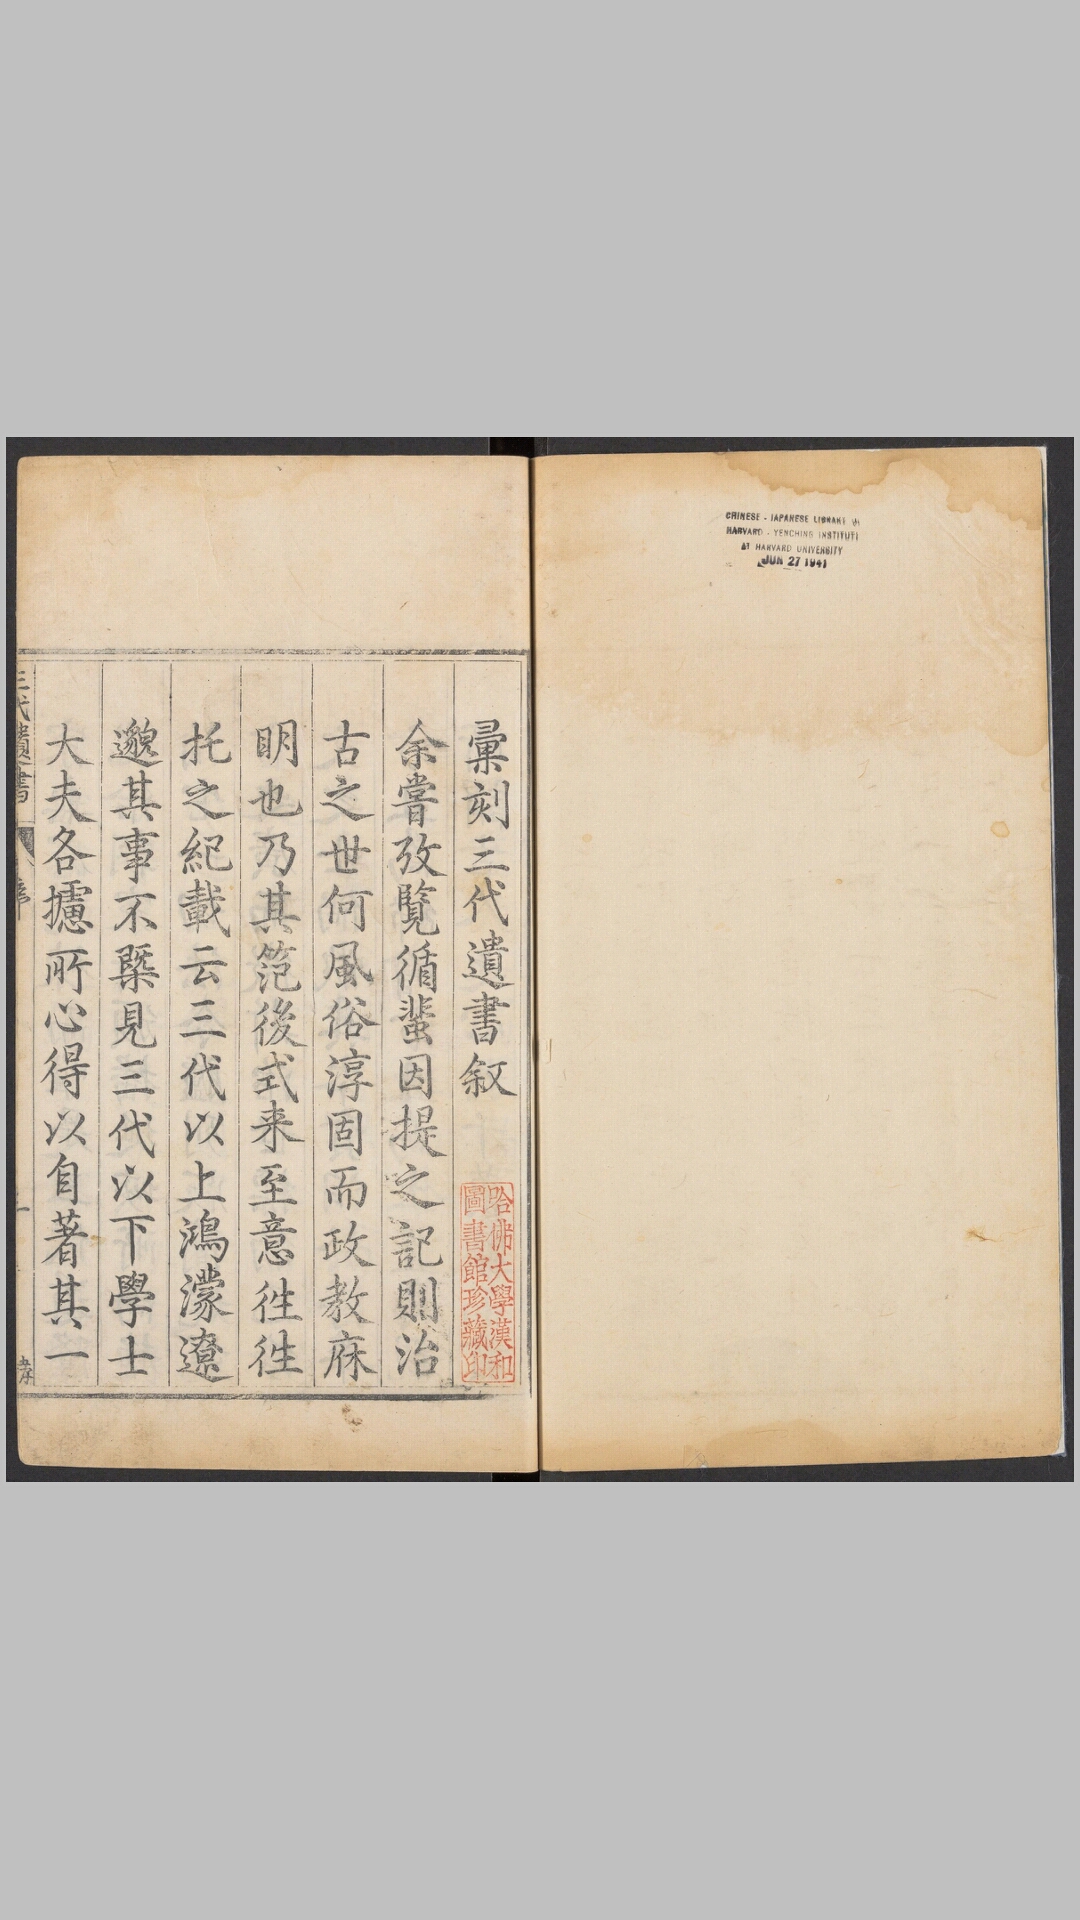 CHINESE - JAPANESE LIBRARY
HARVARD - YENCHING INSTITUTE
AT HARVARD UNIVERSITY
JUN 27 1941
彙刻三代遺書叙
哈佛大學漢和
圖書館珍藏印
余嘗攷覽循蜚因提之記則治
古之世何風俗淳固而政教庥
明也乃其笵後式来至意徃徃
托之紀載云三代以上鴻濛遼
邈其事不槩見三代以下學士
大夫各攄所心得以自著其一
三代遺書
序